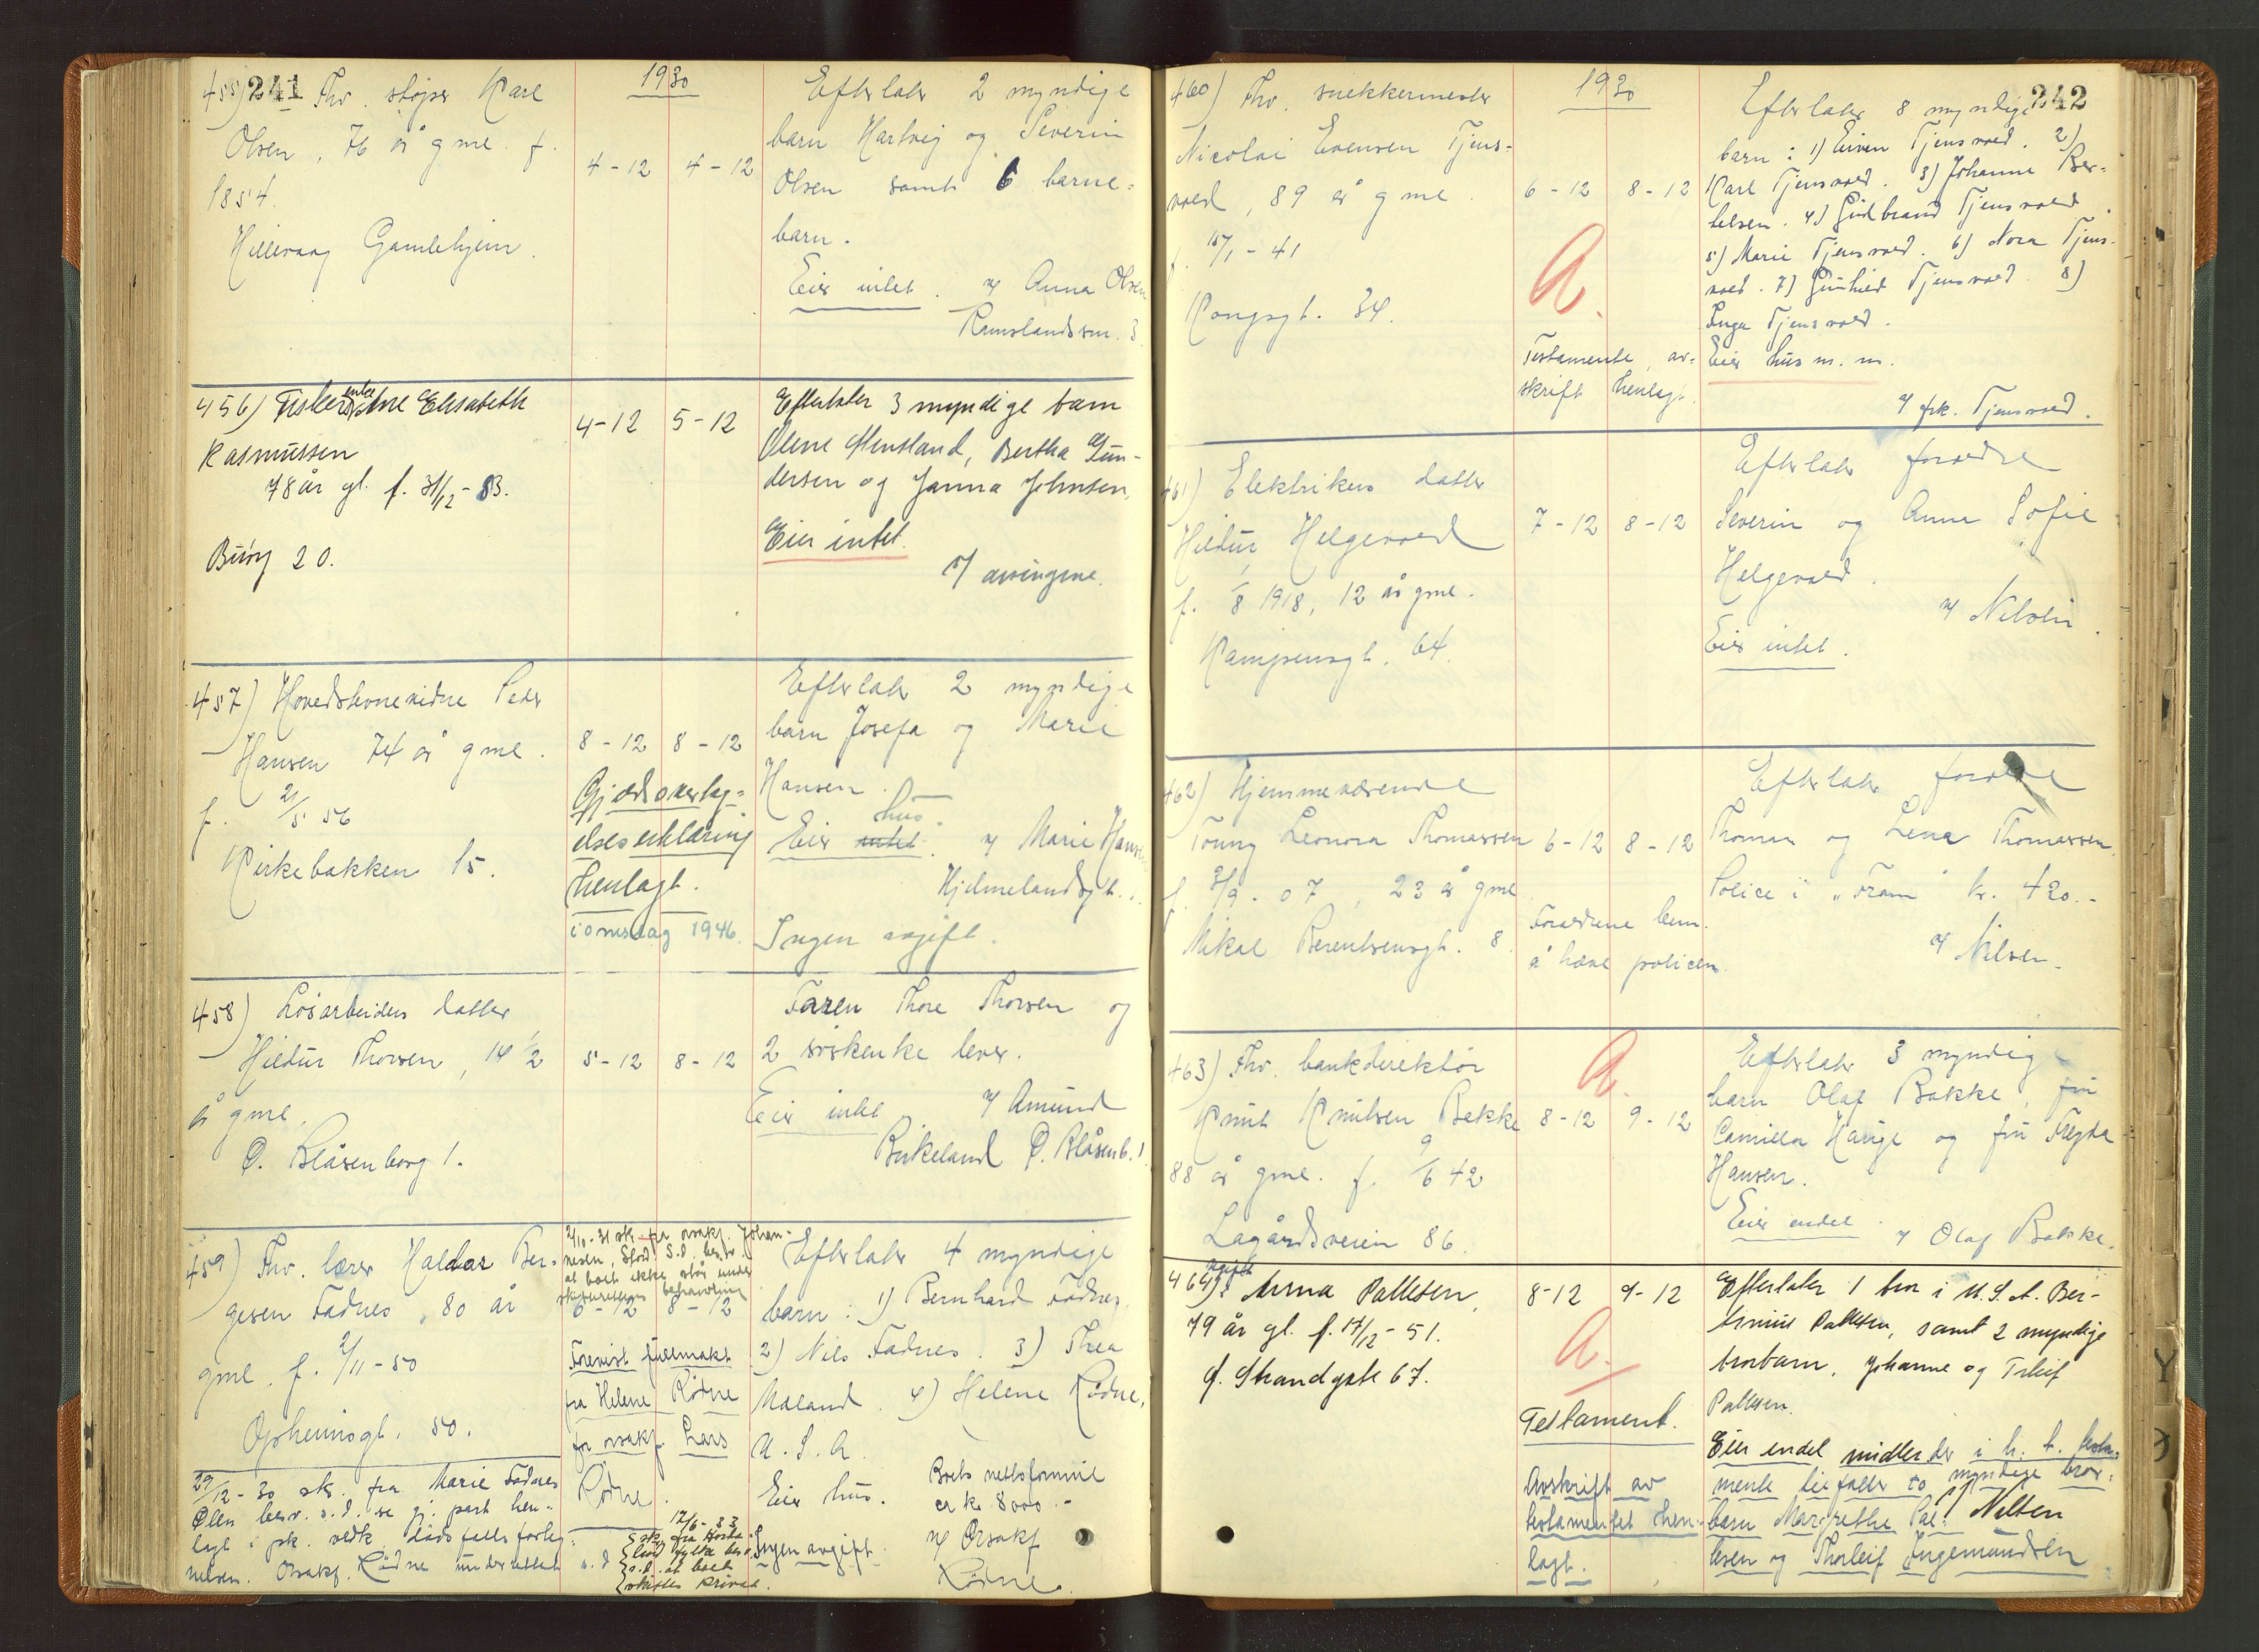 241
1930
455) Fhv. støper Karl
Olsen, 76 år gml. f.
1854.
Hillevaag Gamlehjem.
4-12 4-12
Efterlater 2 myndige
barn Hartvig og Severin
Olsen samt 6 barne=
barn.
Eier intet. v/ Anna Olsen
Ramslandsvn. 3.
456) Fiskerenke Ane Elisabeth
Rasmussen
78 år gl. f. 31/12-53.
Buøy 20.
4-12 5-12
Efterlater 3 myndige barn
Olene Mensland, Bertha Gun-
dersen og Janna Johnsen.
Eier intet.
v/ arvingene.
457) Hovedstevnevidne Peder
Hansen 74 år gml.
f. 21/5 56
Kirkebakken 15.
8-12 8-12
Gjældsovertag=
elseserklæring
henlagt.
i omslag 1946.
Efterlater 2 myndige
barn Josefa og Marie
Hansen.
hus.
Eier intet. v/ Marie Hansen
Hjelmelandsgt.
Ingen avgift.
458) Løsarbeiders datter
Hildur Thorsen, 14 1/2
år gml.
Ø. Blåsenborg 1.
5-12 8-12
Faren Thore Thorsen og
2 søskenke lever.
Eier intet v/ Amund
Birkeland Ø. Blåsenb. 1
459) Fhv. lærer Haldor Ber=
gesen Fadnes, 80 år
gml. f. 2/11-50
Opheimsgt. 50.
29/12-30 sk. fra Marie Fadnes
Ølen besv. s.d. se gj. part hen=
lagt i pk. vedk. dødsfallsforteg=
nelsen. Orsakf. Rødne underrettet s.d.
2/10-31 sk. fra orsakf. Johan-
nesen, S.d. besv.
at boet ikke står under
skifterettens behandling
6-12 8-12
Forevist fullmakt
fra Helene Rødne
for orsakf. Lars
Rødne.
17/6-33
sk. fra
s.d. at boet
skiftes privat.
Efterlater 4 myndige
barn: 1) Bernhard Fadnes.
2) Nils Fadnes. 3) Thea
Maland. 4) Helene Rødne,
U.S.A.
Eier hus. Boets nettoformue
ca kr. 8000.-
Ingen avgift. v/ Orsakf
Rødne.
242
1930
460) Fhv. snekkermester
Nicolai Evensen Tjens=
vold, 89 år gml.
f. 15/1-41
Kongsgt. 34.
6-12 8-12
A.
Testamente, av=
skrift henlagt.
Efterlater 8 myndige
barn: 1) Even Tjensvold. 2)
Karl Tjensvold. 3) Johanne Ber=
telsen. 4) Gudbrand Tjensvold.
5) Marie Tjensvold. 6) Nora Tjens-
vold. 7) Gunhild Tjensvold. 8)
Inga Tjensvold.
Eier hus m.m.
v/ frk. Tjensvold.
461) Elektrikers datter
Hildur Helgevold
f. 1/8 1918, 12 år gml.
Kampensgt. 64.
7-12 8-12
Efterlater foreldre
Severin og Anna Sofie
Helgevold.
v/ Nilsen.
Eier intet.
462) Hjemmeværende
Toung Leonora Thomassen
f. 3/9-07, 23 år gml.
Mikal Berentsensgt. 8.
6-12 8-12
Foreldrene bem.
å hæve policen.
Efterlater foreldre
Thomas og Lena Thomassen.
Police i "Fram" kr. 420.-
v/ Nilsen.
463) Fhv. bankdirektør
Knut Knutsen Bakke
88 år gml. f. 9/6 42
Lagårdsveien 86.
A.
8-12 9-12
Efterlater 3 myndige
barn Olaf Bakke, fru
Camilla Hauge og fru Fleyda
Hansen.
Eier endel. v/ Olaf Bakke.
464) ugift Anna Pallesen,
79 år gl. f. 17/12-51.
N. Strandgate 67.
8-12 9-12
A.
Testament.
Avskrift av
testamentet hen-
lagt.
Efterlater 1 bror i U.S.A. Ber-
tinius Pallesen, samt 2 myndige
brorbarn, Johanne og Trleif
Pallesen.
Eier endel midler der i h. t. testa-
mente tilfaller to myndige bror=
barn Margrethe Pal= v/ Nilsen
lesen og Thorleif Ingemundsen